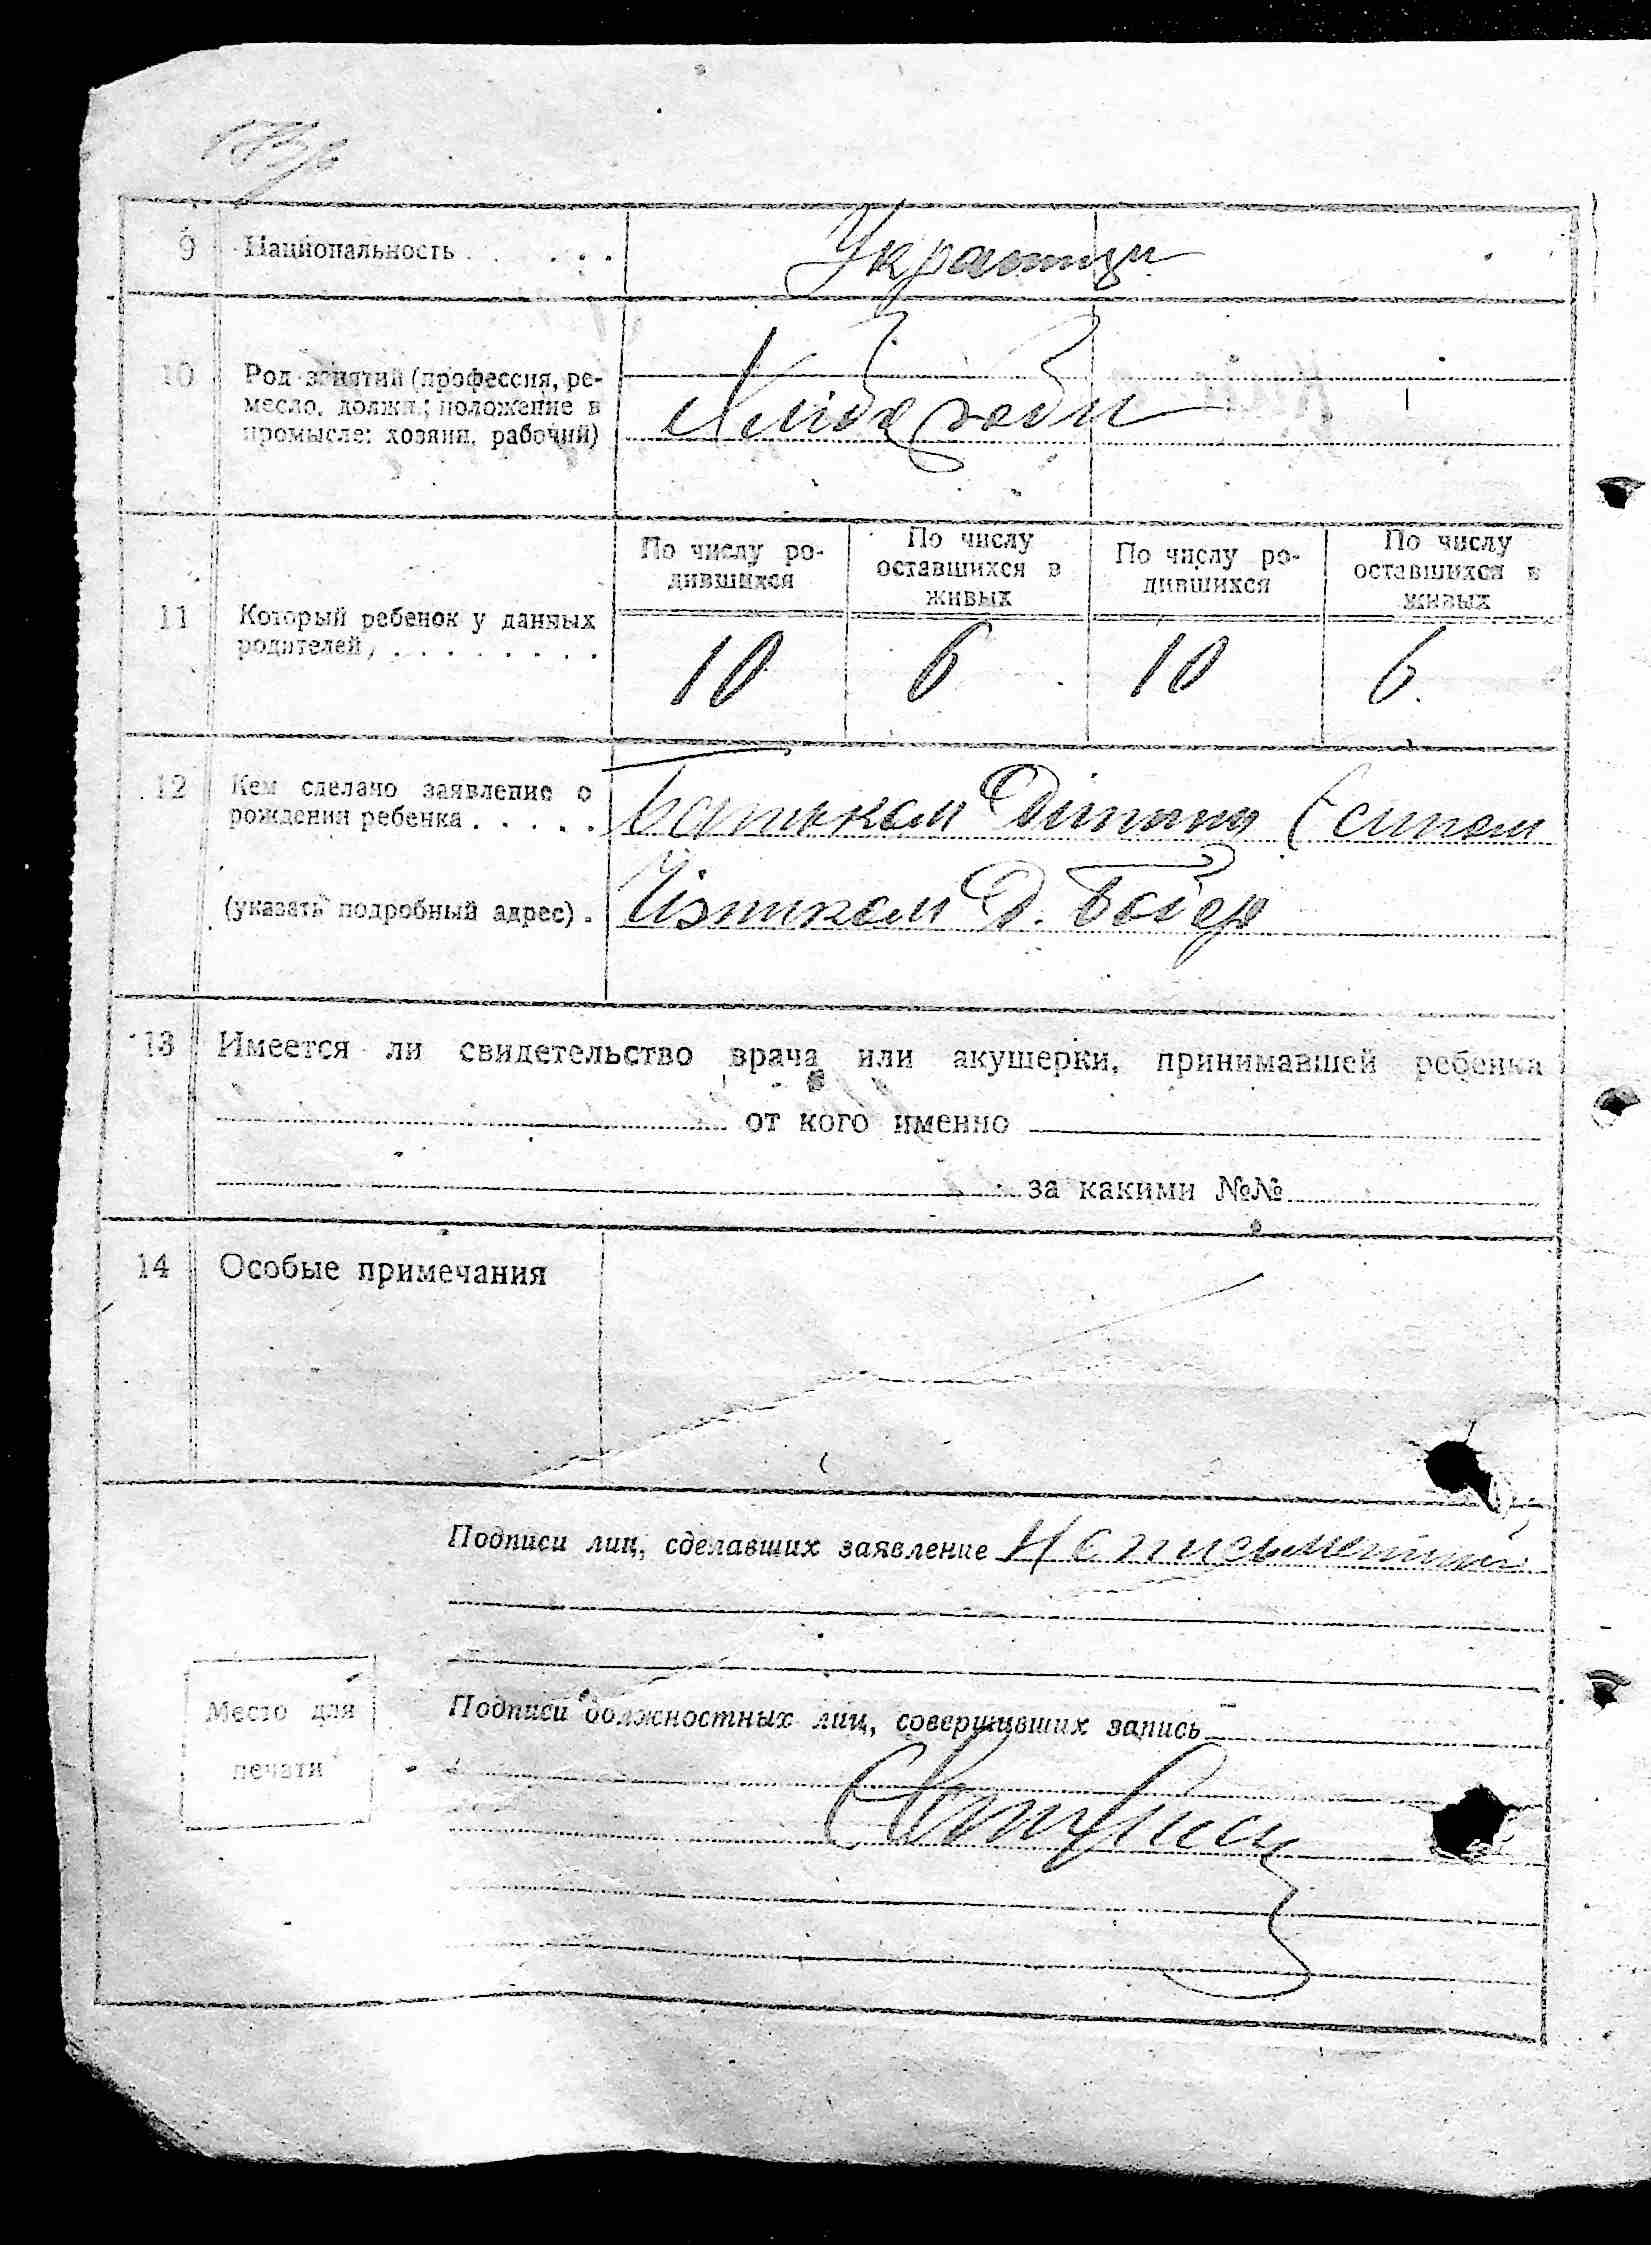 9 Национальность . . . . . Українці
10 Род занятий (профессия, ре-
месло, должн.; положение в
промысле: хозяин, рабочий)
Хлібороби
По числу ро-
дившихся
По числу
оставшихся в
живых
По числу ро-
дившихся
По числу
оставшихся в
живых
11 Который ребенок у данных
родителей, . . . . . . . .
10 6 10 6
12 Кем сделано заявление о
рождении ребенка . . . . .
батьком Дитини
(указать подробный адрес) .
13 Имеется ли свидетельство врача или акушерки, принимавшей ребенка
от кого именно
за какими №№
14 Особые примечания
Подписи лиц, сделавших заявление Неписьменний
Место для
печати
Подписи должностных лиц, совершивших запись